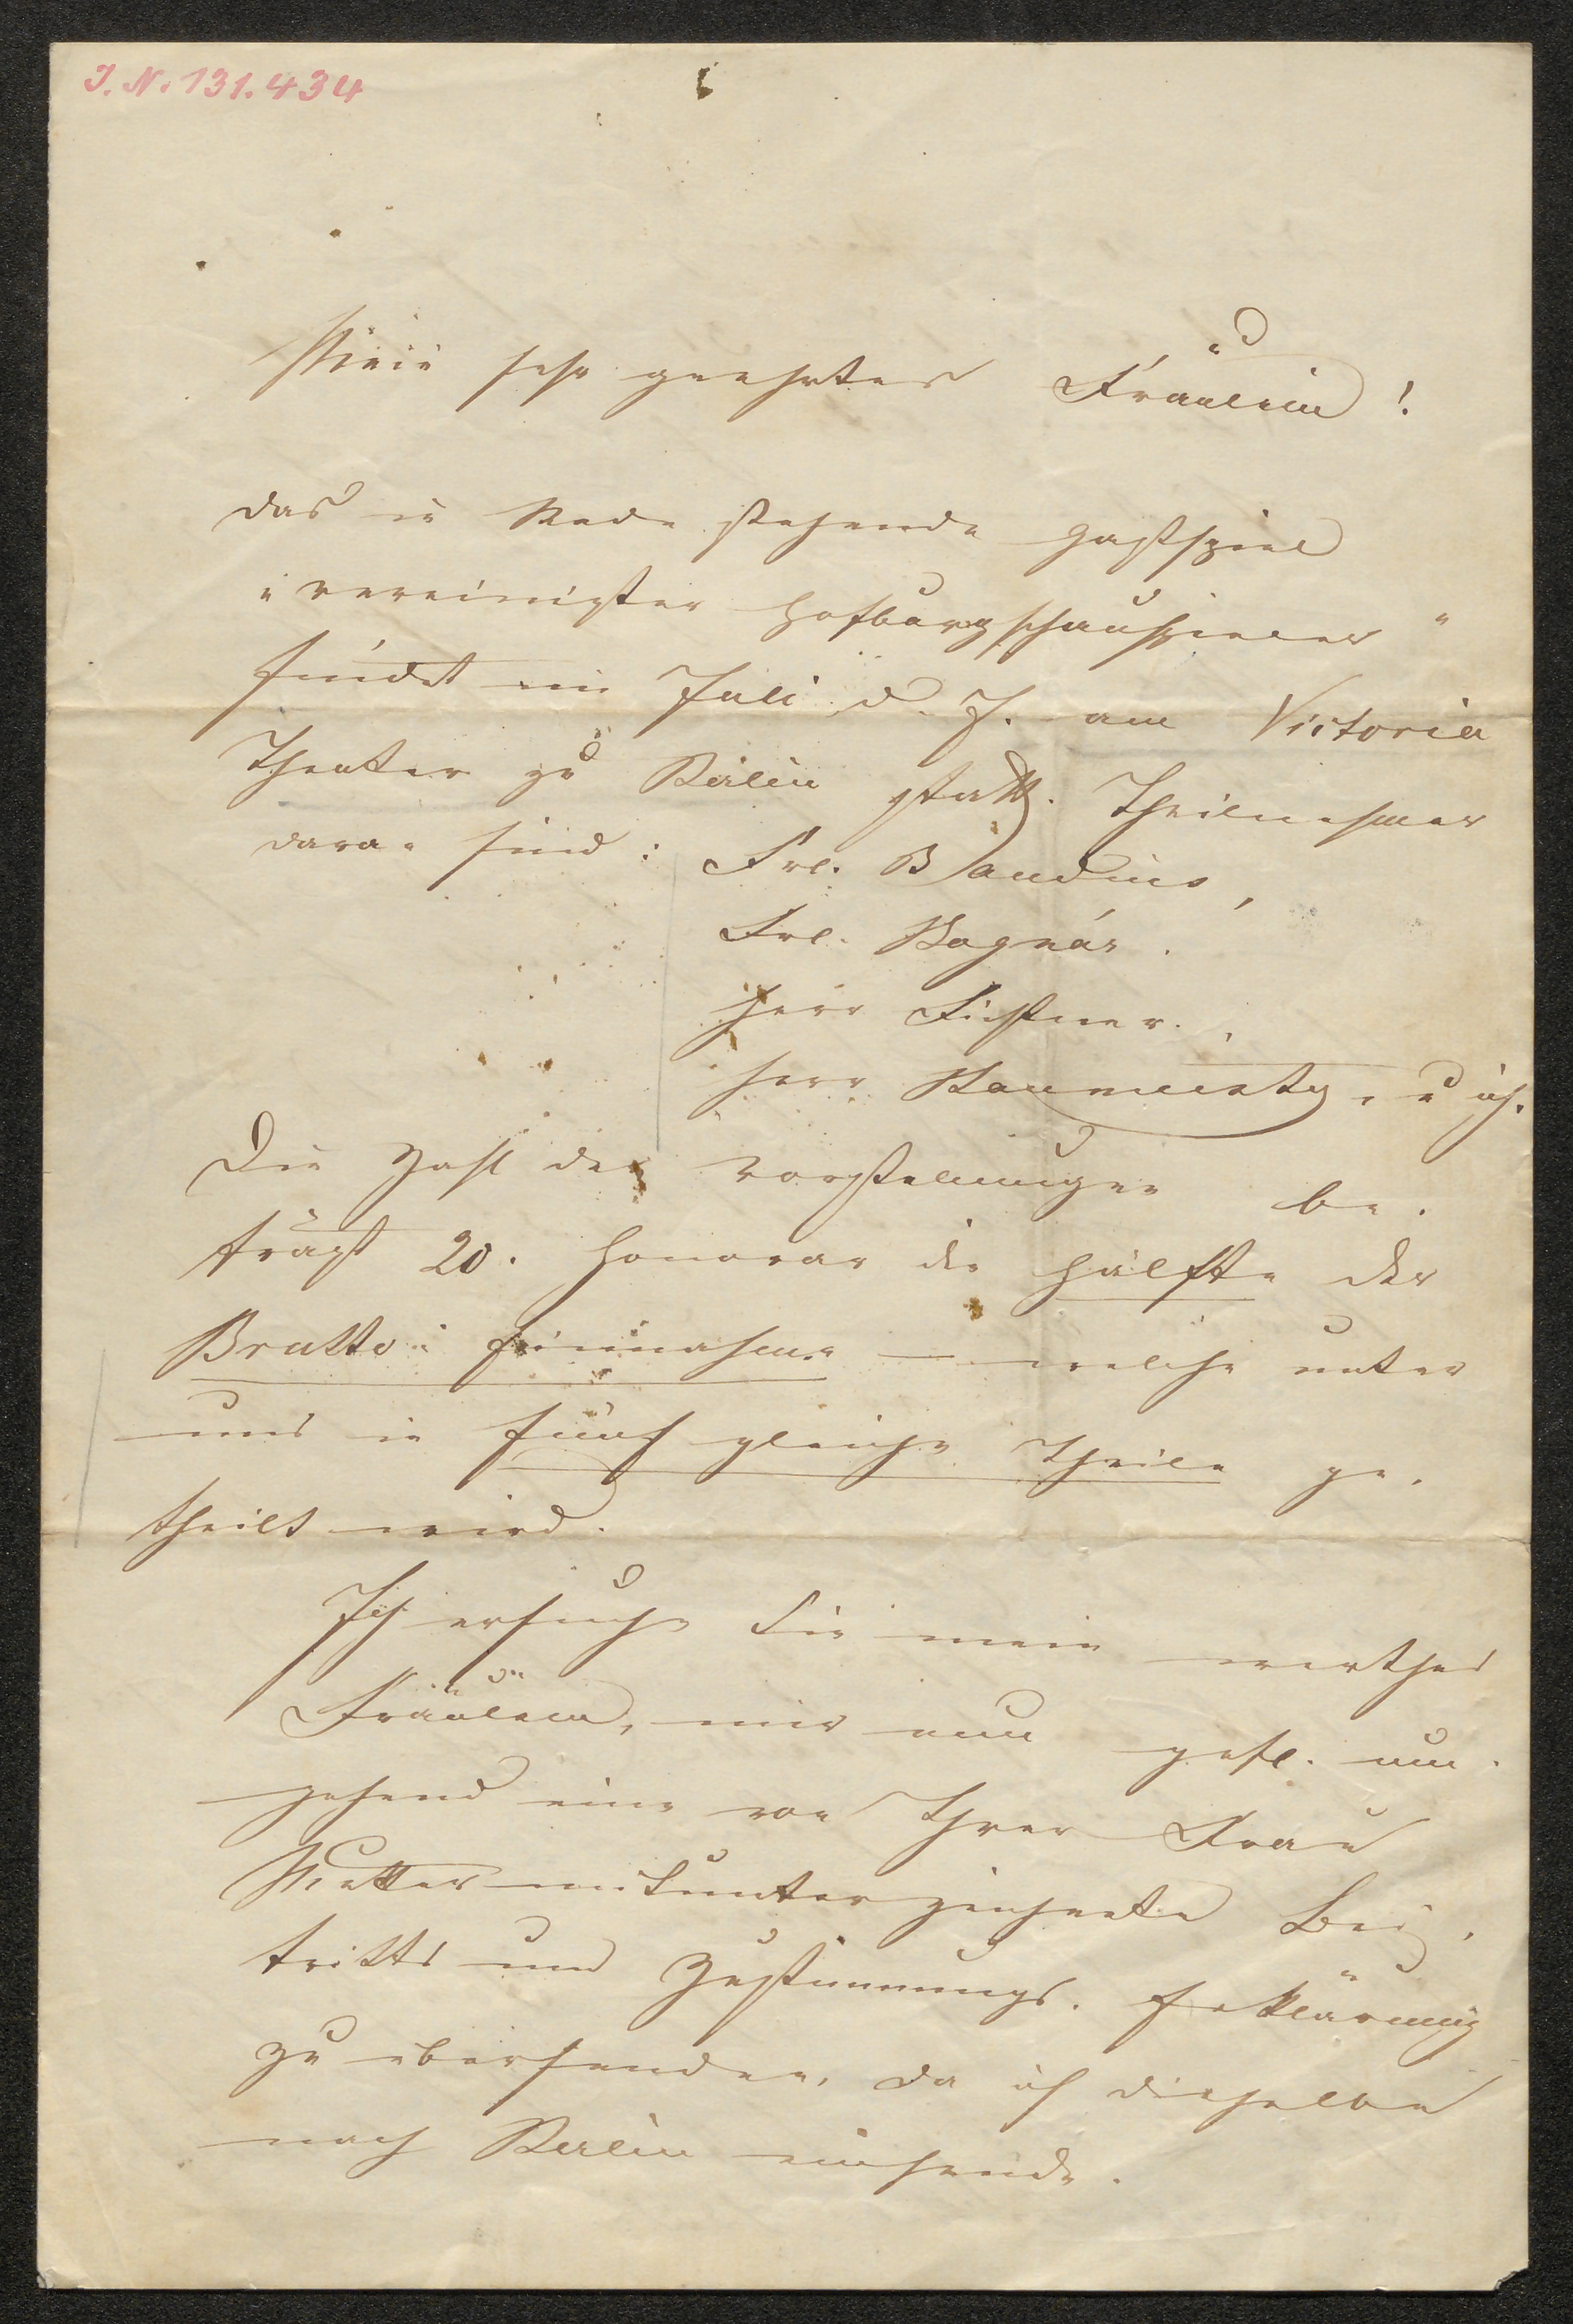 J. N. 131.434
Mein sehr geehrtes Fräulein!
Das in Rede stehende Gastspiel
"vereinigter Hofburgschauspieler"
findet im Juli d. J. am Victoria
Theater zu Berlin statt. Theilnehmer
daran sind: Frl. Baudius,
Frl. Bognár.
Herr Fichtner.,
Herr Baumeister, u ich.
Die Zahl der Vorstellungen be-
trägt 20. Honorar die Hälfte der
Brutto-Einnahme — welche unter
uns in fünf gleiche Theile ge-
theilt wird.
Ich ersuche Sie mein werthes
Fräulein, mir nun gefl. um-
gehend eine von Ihrer Frau
Mutter mitunterzeichnete Bei-
tritts und Zustimmungs-Erklärung
zu übersenden, da ich dieselbe
nach Berlin einsende.